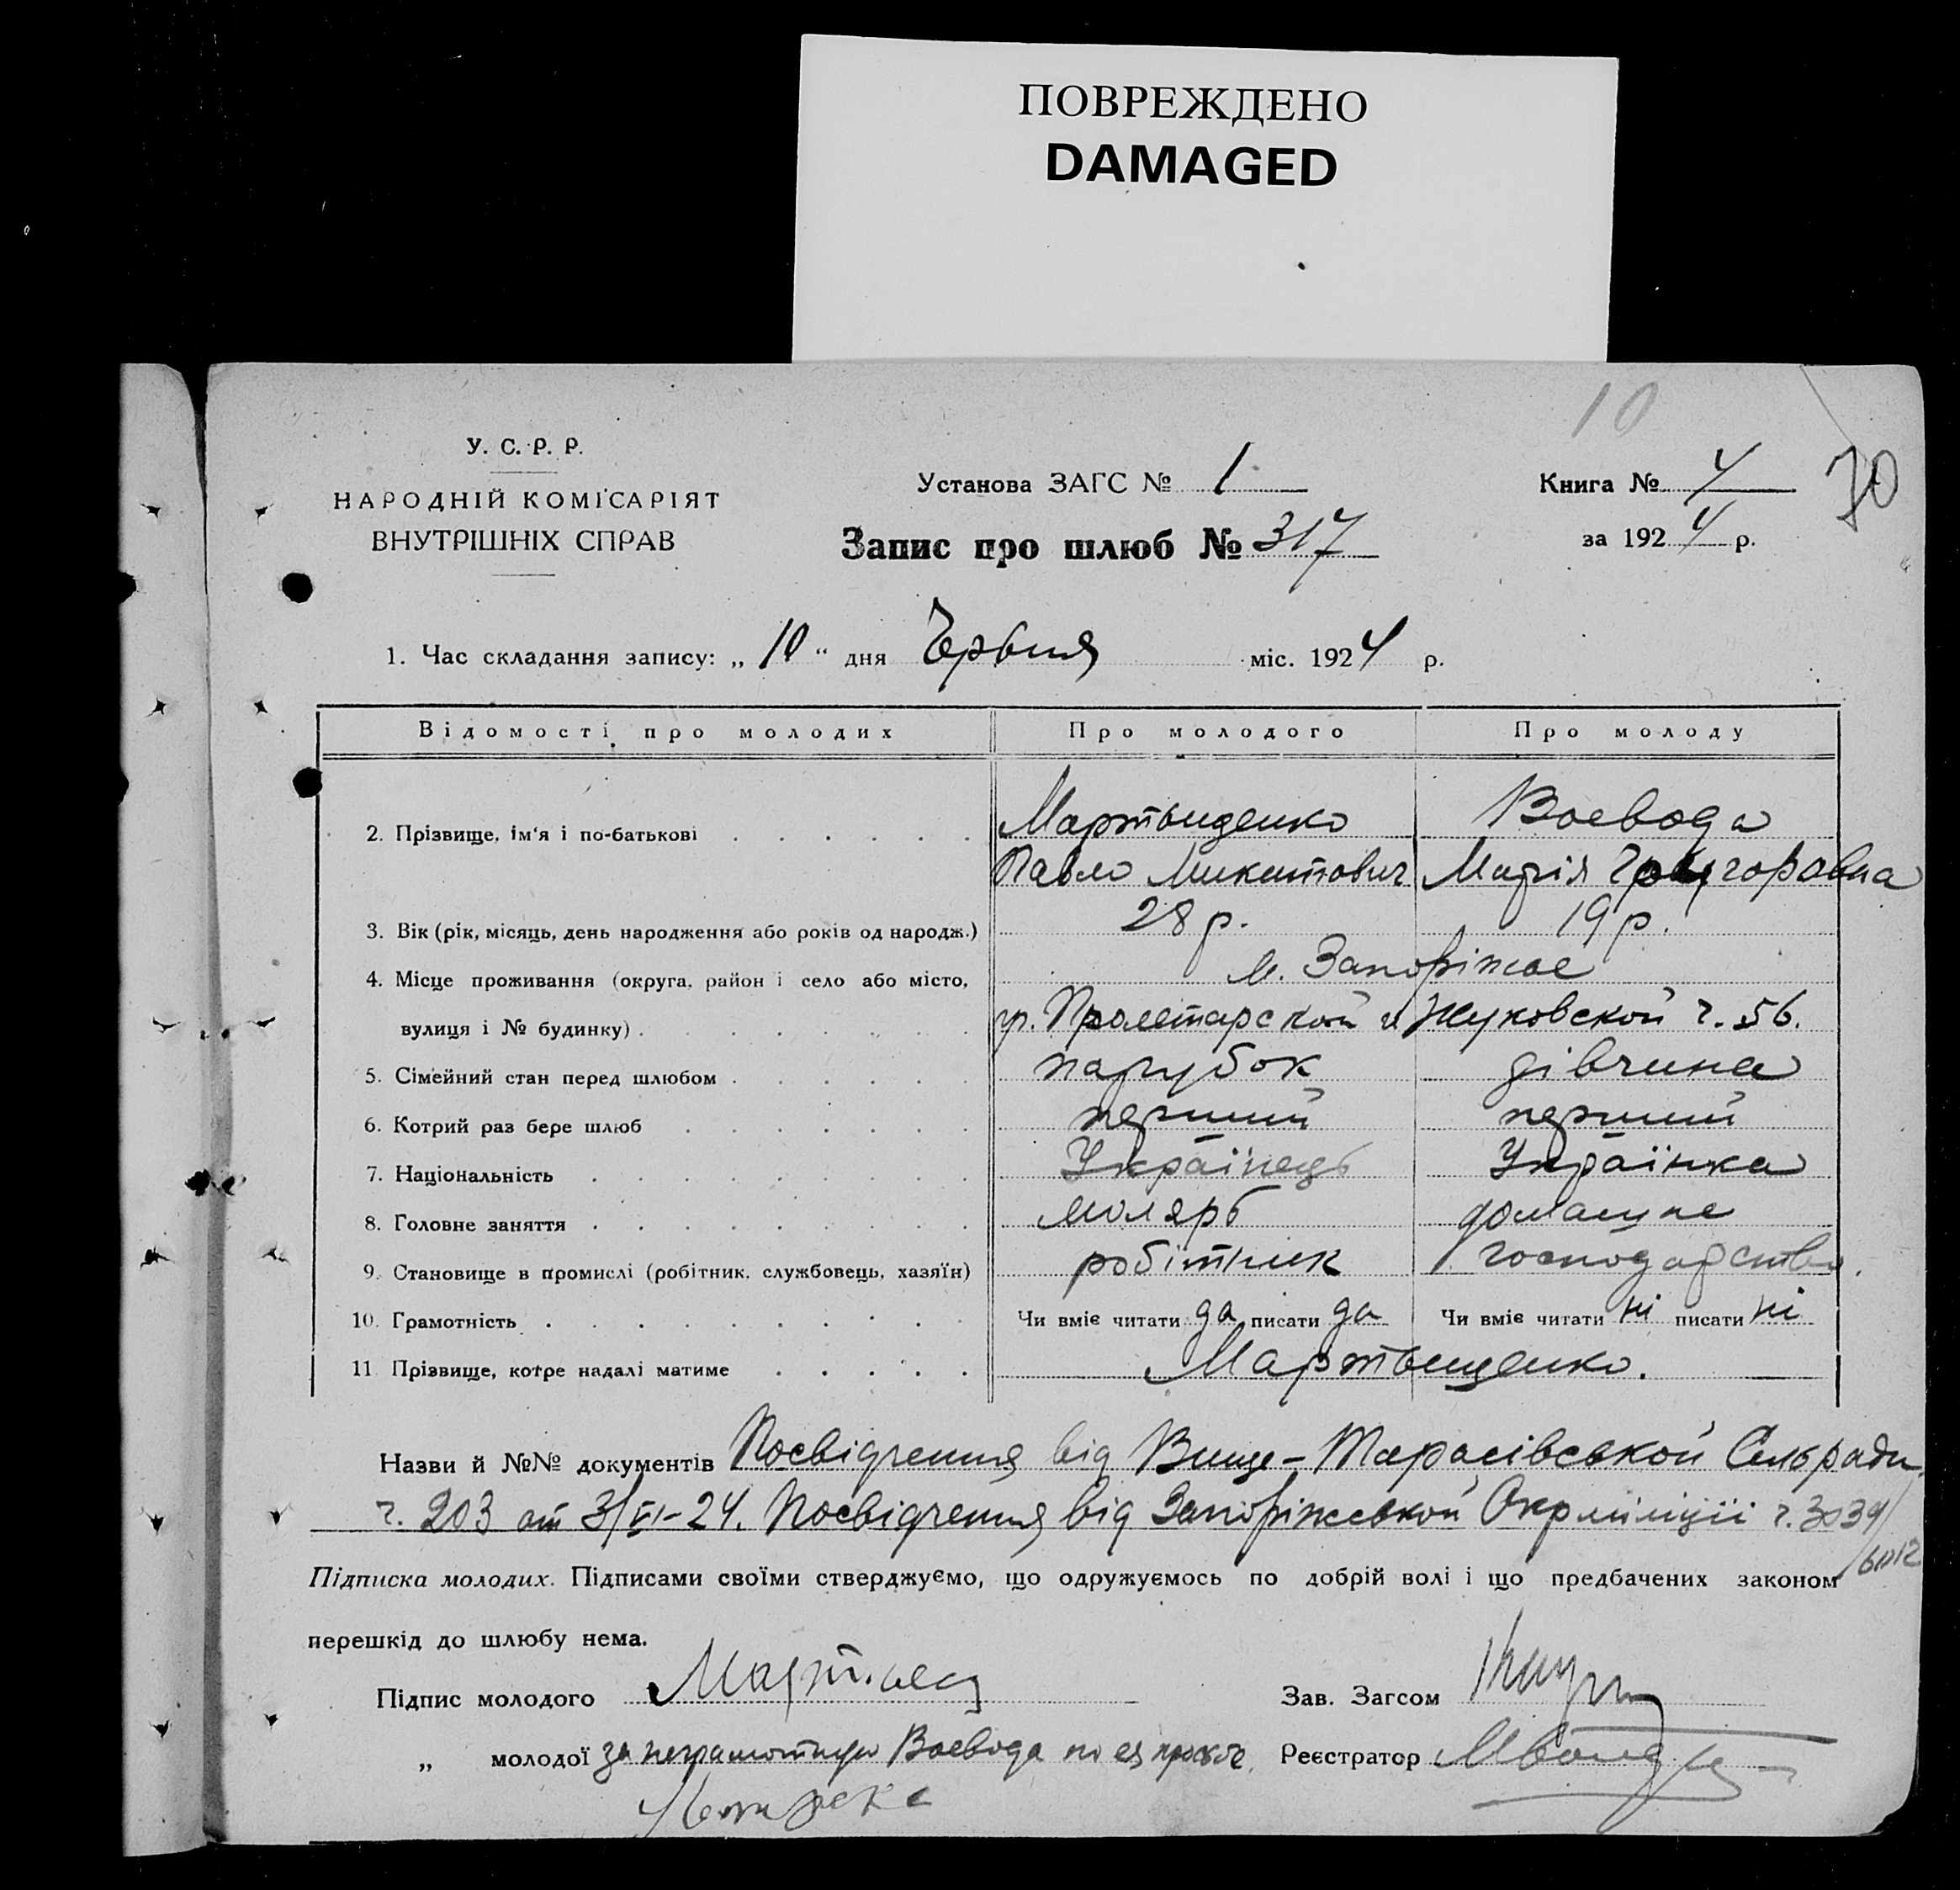 ПОВРЕЖДЕНО
DAMAGED
10
У. С. Р. Р.
НАРОДНІЙ КОМІСАРІЯТ
ВНУТРІШНІХ СПРАВ
Установа ЗАГС № 1
Книга № 4
70
Запис про шлюб № 317
за 1924 р.
1. Час складання запису: „ 10 “ дня Червня міс. 1924 р.
Відомості про молодих Про молодого Про молоду
2. Прізвище, ім'я і по-батькові Мартыщенко Воевода
Павло Микитович Марія Григоровна
3. Вік (рік, місяць, день народження або років од народж.) 28 р. 19 р.
4. Місце проживання (округа, район і село або місто, м. Запоріжье
вулиця і № будинку) Пролетарской и Жуковской ч. 56.
5. Сімейний стан перед шлюбом парубок дівчина
6. Котрий раз бере шлюб перший перший
7. Національність Українець Українка
8. Головне заняття молярь домашне
9. Становище в промислі (робітник, службовець, хазяїн) робітник господарство.
10. Грамотність Чи вміє читати да писати да Чи вміє читати ні писати ні
11. Прізвище, котре надалі матиме Мартыщенко.
Назви й №№ документів Посвідчення від Вище-Тарасівськой Сельради
ч. 203 от 3/VI-24. Посвідчення від Запоріжськой Окрміліції ч. 3039/
6012
Підписка молодих. Підписами своїми стверджуємо, що одружуємось по добрій волі і що предбачених законом
перешкід до шлюбу нема.
Підпис молодого Зав. Загсом
„ молодої за неграмотную Воевода по ея просьбе Реєстратор